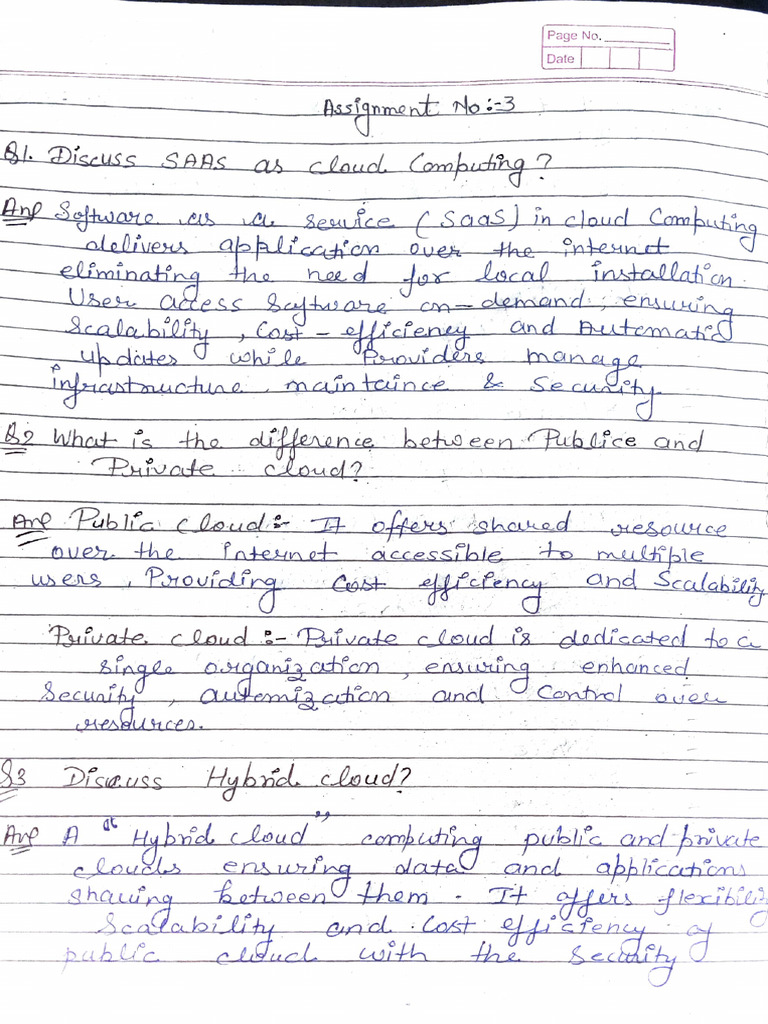 Page No.
Date
Assignment No:-3
Q1. Discuss SAAS as cloud Computing?
Ans Software as a service (SaaS) in cloud Computing
delivers application over the internet
eliminating the need for local installation.
User access Software on-demand, ensuring
Scalability, Cost-efficiency and Automatic
updates while Providers manage
infrastructure, maintaince & Security
Q2 What is the difference between Publice and
Private cloud?
Ans Public cloud:- It offers shared resource
over the internet accessible to multiple
users, Providing Cost efficiency and Scalability
Private cloud:- Private cloud is dedicated to a
single organization, ensuring enhanced
Security, automization and Control over
resources.
Q3 Discuss Hybrid cloud?
Ans A "Hybrid cloud" computing public and private
clouds ensuring data and applications
sharing between them. It offers flexibility
Scalability and Cost efficiency of
public cloud with the Security